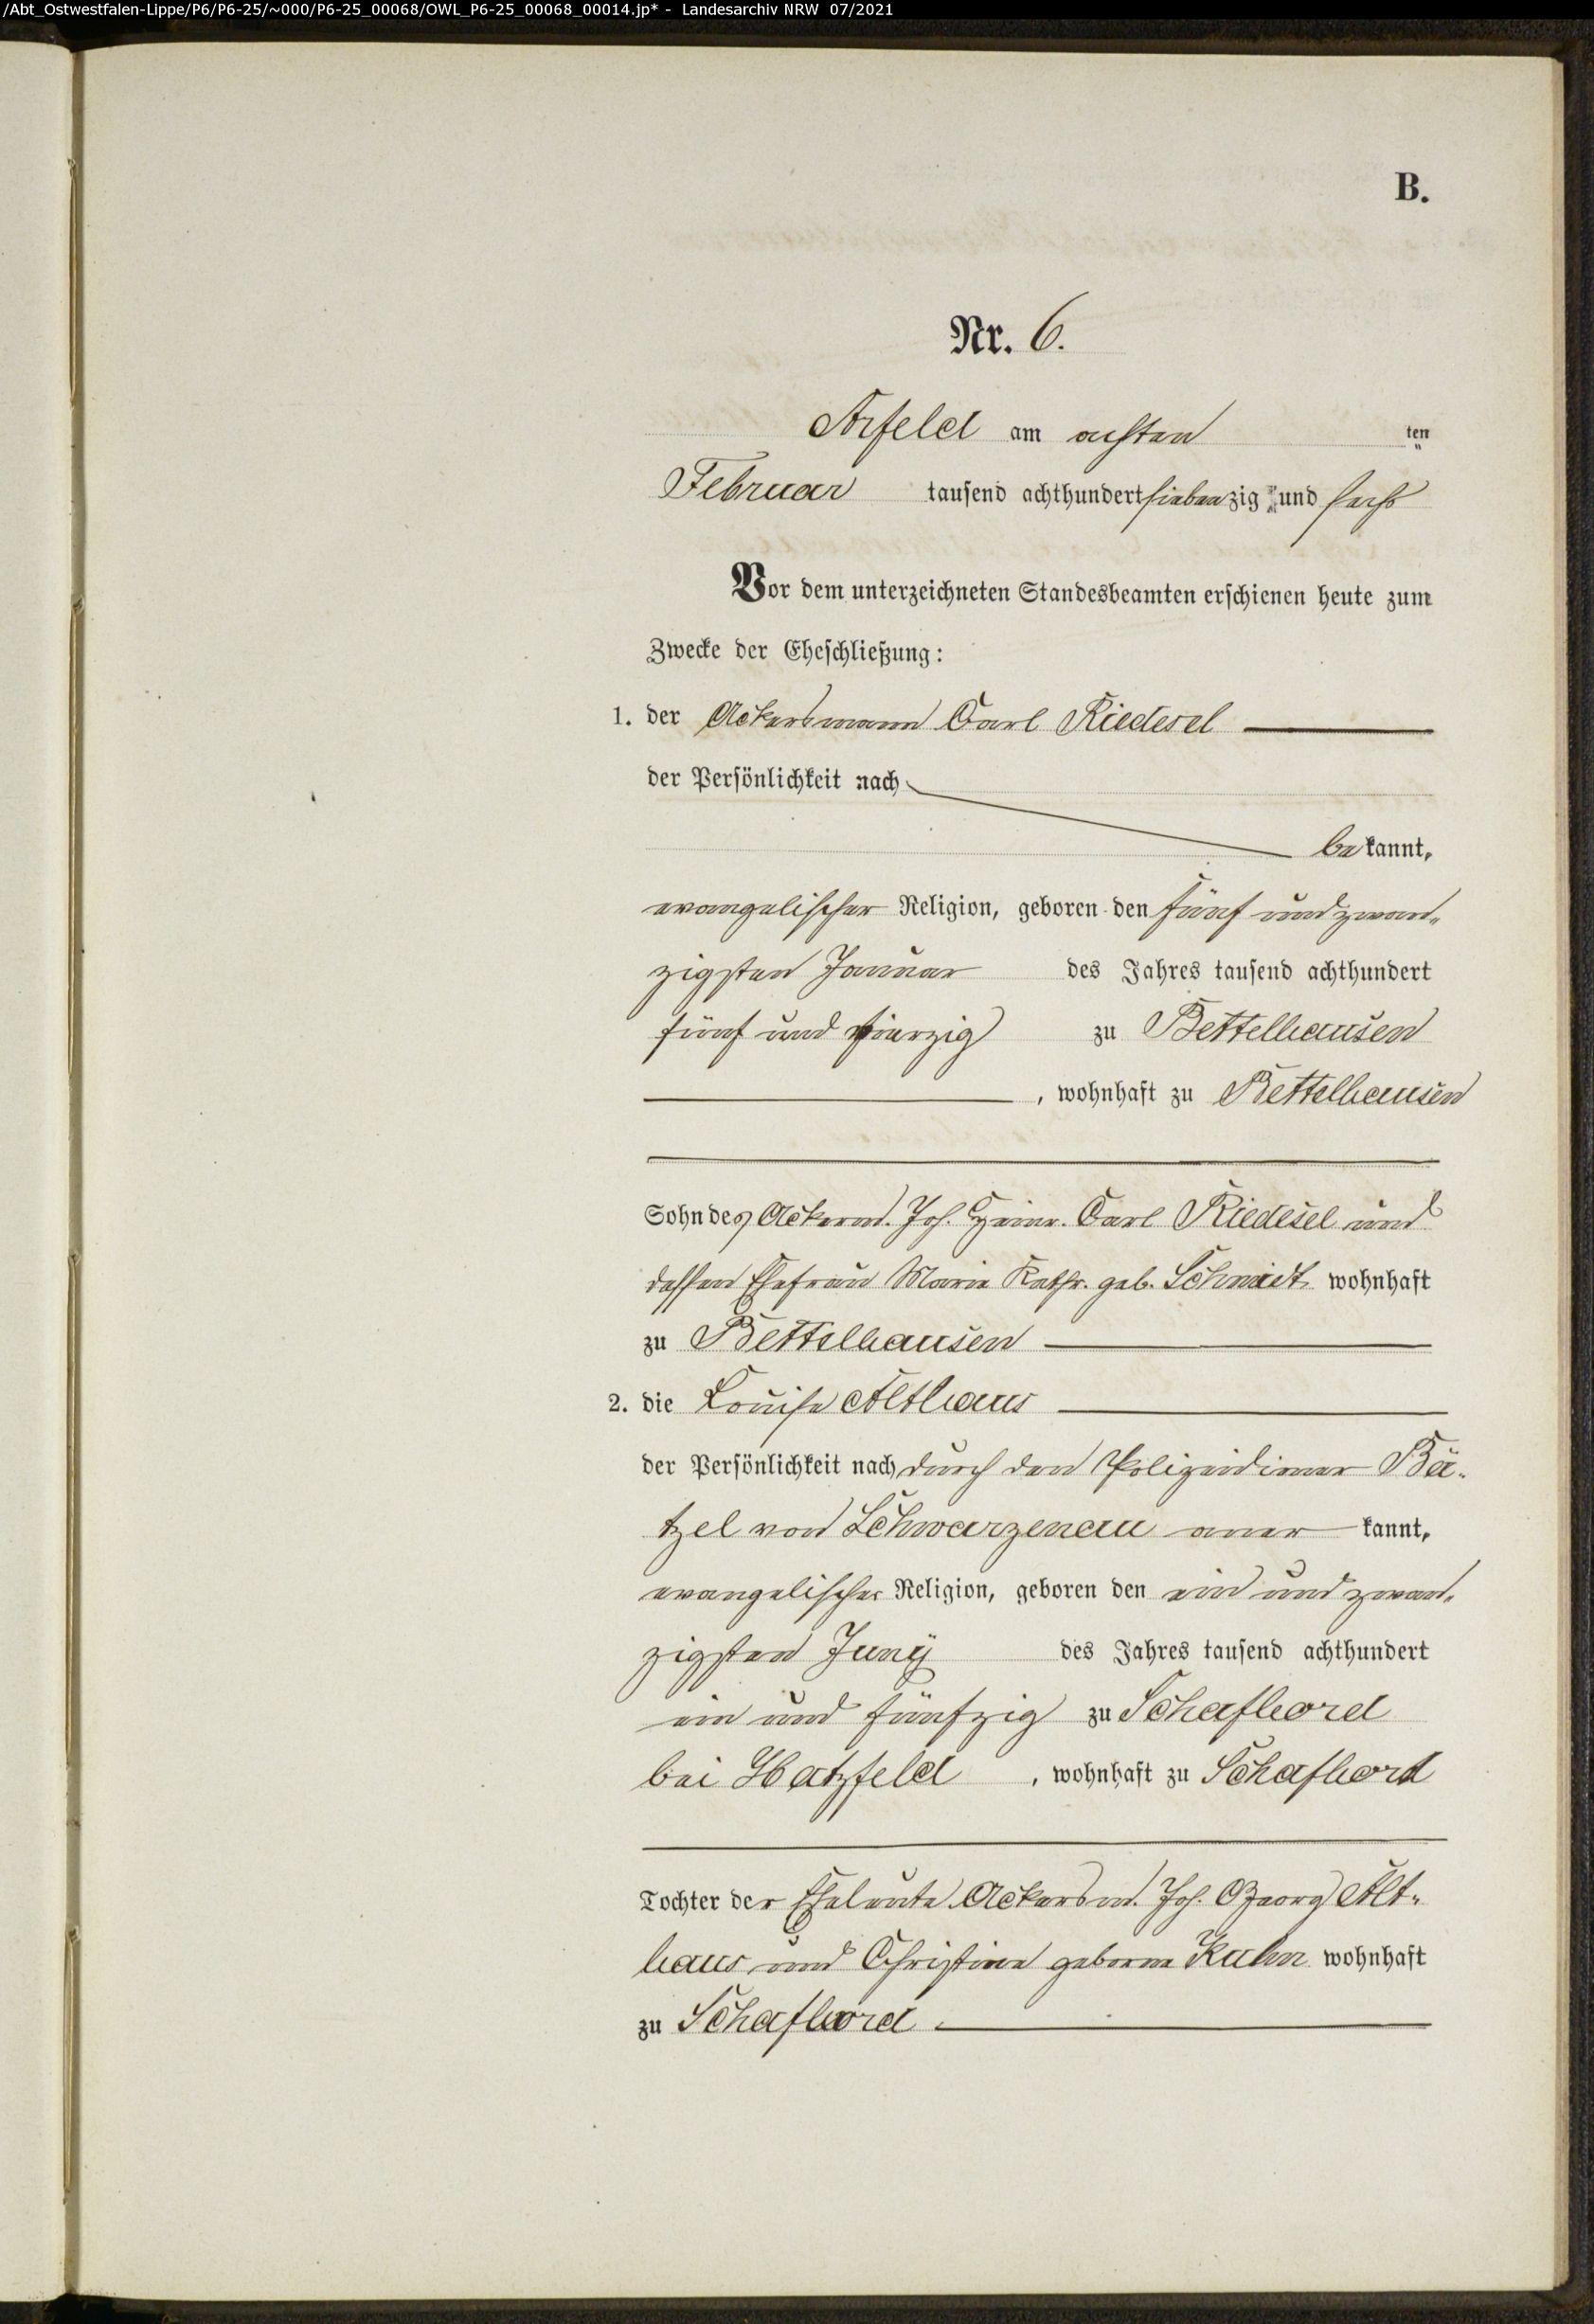 /Abt_Ostwestfalen-Lippe/P6/P6-25/~000/P6-25_00068/OWL_P6-25_00068_00014.jp* - Landesarchiv NRW 07/2021
B.
Nr. 6.
Arfeld am achten ten
Februar tausend achthundert siebenzig und sechs
Vor dem unterzeichneten Standesbeamten erschienen heute zum
Zwecke der Eheschließung:
1. der Ackersmann Carl Riedesel
der Persönlichkeit nach
bekannt,
evangelischer Religion, geboren den fünf und zwan-
zigsten Januar des Jahres tausend achthundert
fünf und vierzig zu Bettelhausen
, wohnhaft zu Bettelhausen
Sohn des Ackerm. Joh. Heinr. Carl Riedesel und
dessen Ehefrau Marie Kathr. geb. Schmidt wohnhaft
zu Bettelhausen
2. die Louise Althaus
der Persönlichkeit nach durch den Polizeidiener Bä-
tzel von Schwarzenau aner kannt,
evangelischer Religion, geboren den ein und zwan-
zigsten Juny des Jahres tausend achthundert
ein und fünfzig zu Schafhord
bei Hatzfeld , wohnhaft zu Schafhord
Tochter der Eheleute Ackersm. Joh. Georg Alt-
haus und Christine geborne Kuhn wohnhaft
zu Schafhord